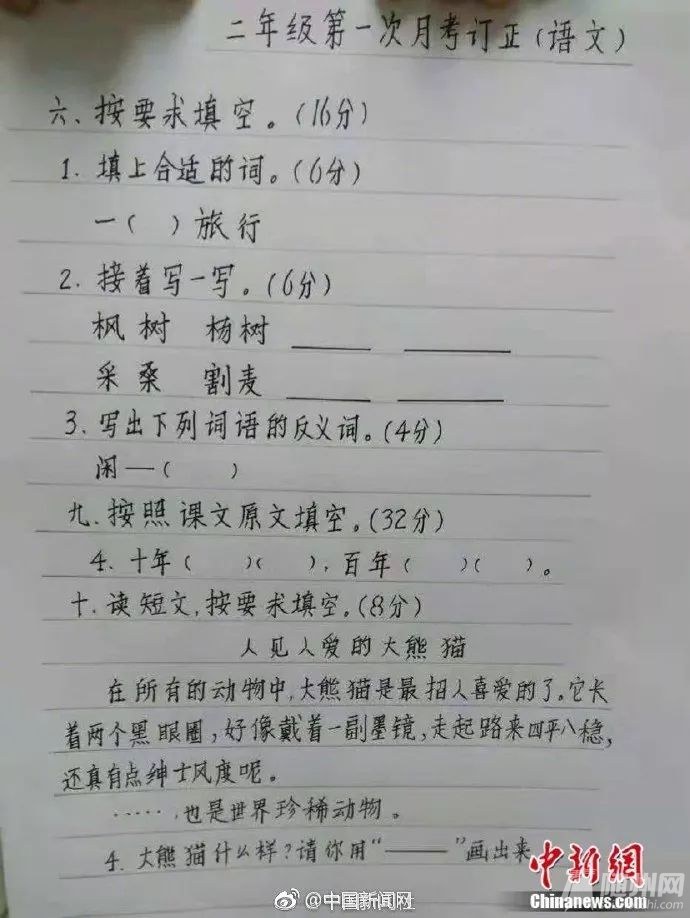 二年级第一次月考订正(语文)
六、按要求填空。(16分)
1. 填上合适的词。(6分)
一(  )旅行
2. 接着写一写。(6分)
枫树 杨树 ____ ____
采桑 割麦 ____ ____
3. 写出下列词语的反义词。(4分)
闲—(  )
九、按照课文原文填空。(32分)
4. 十年(  )(  ),百年(  )(  )。
十、读短文,按要求填空。(8分)
人见人爱的大熊猫
在所有的动物中,大熊猫是最招人喜爱的了。它长
着两个黑眼圈,好像戴着一副墨镜,走起路来四平八稳,
还真有点绅士风度呢。
……,也是世界珍稀动物。
4. 大熊猫什么样?请你用“——”画出来
中新网
Chinanews.com
@中国新闻网